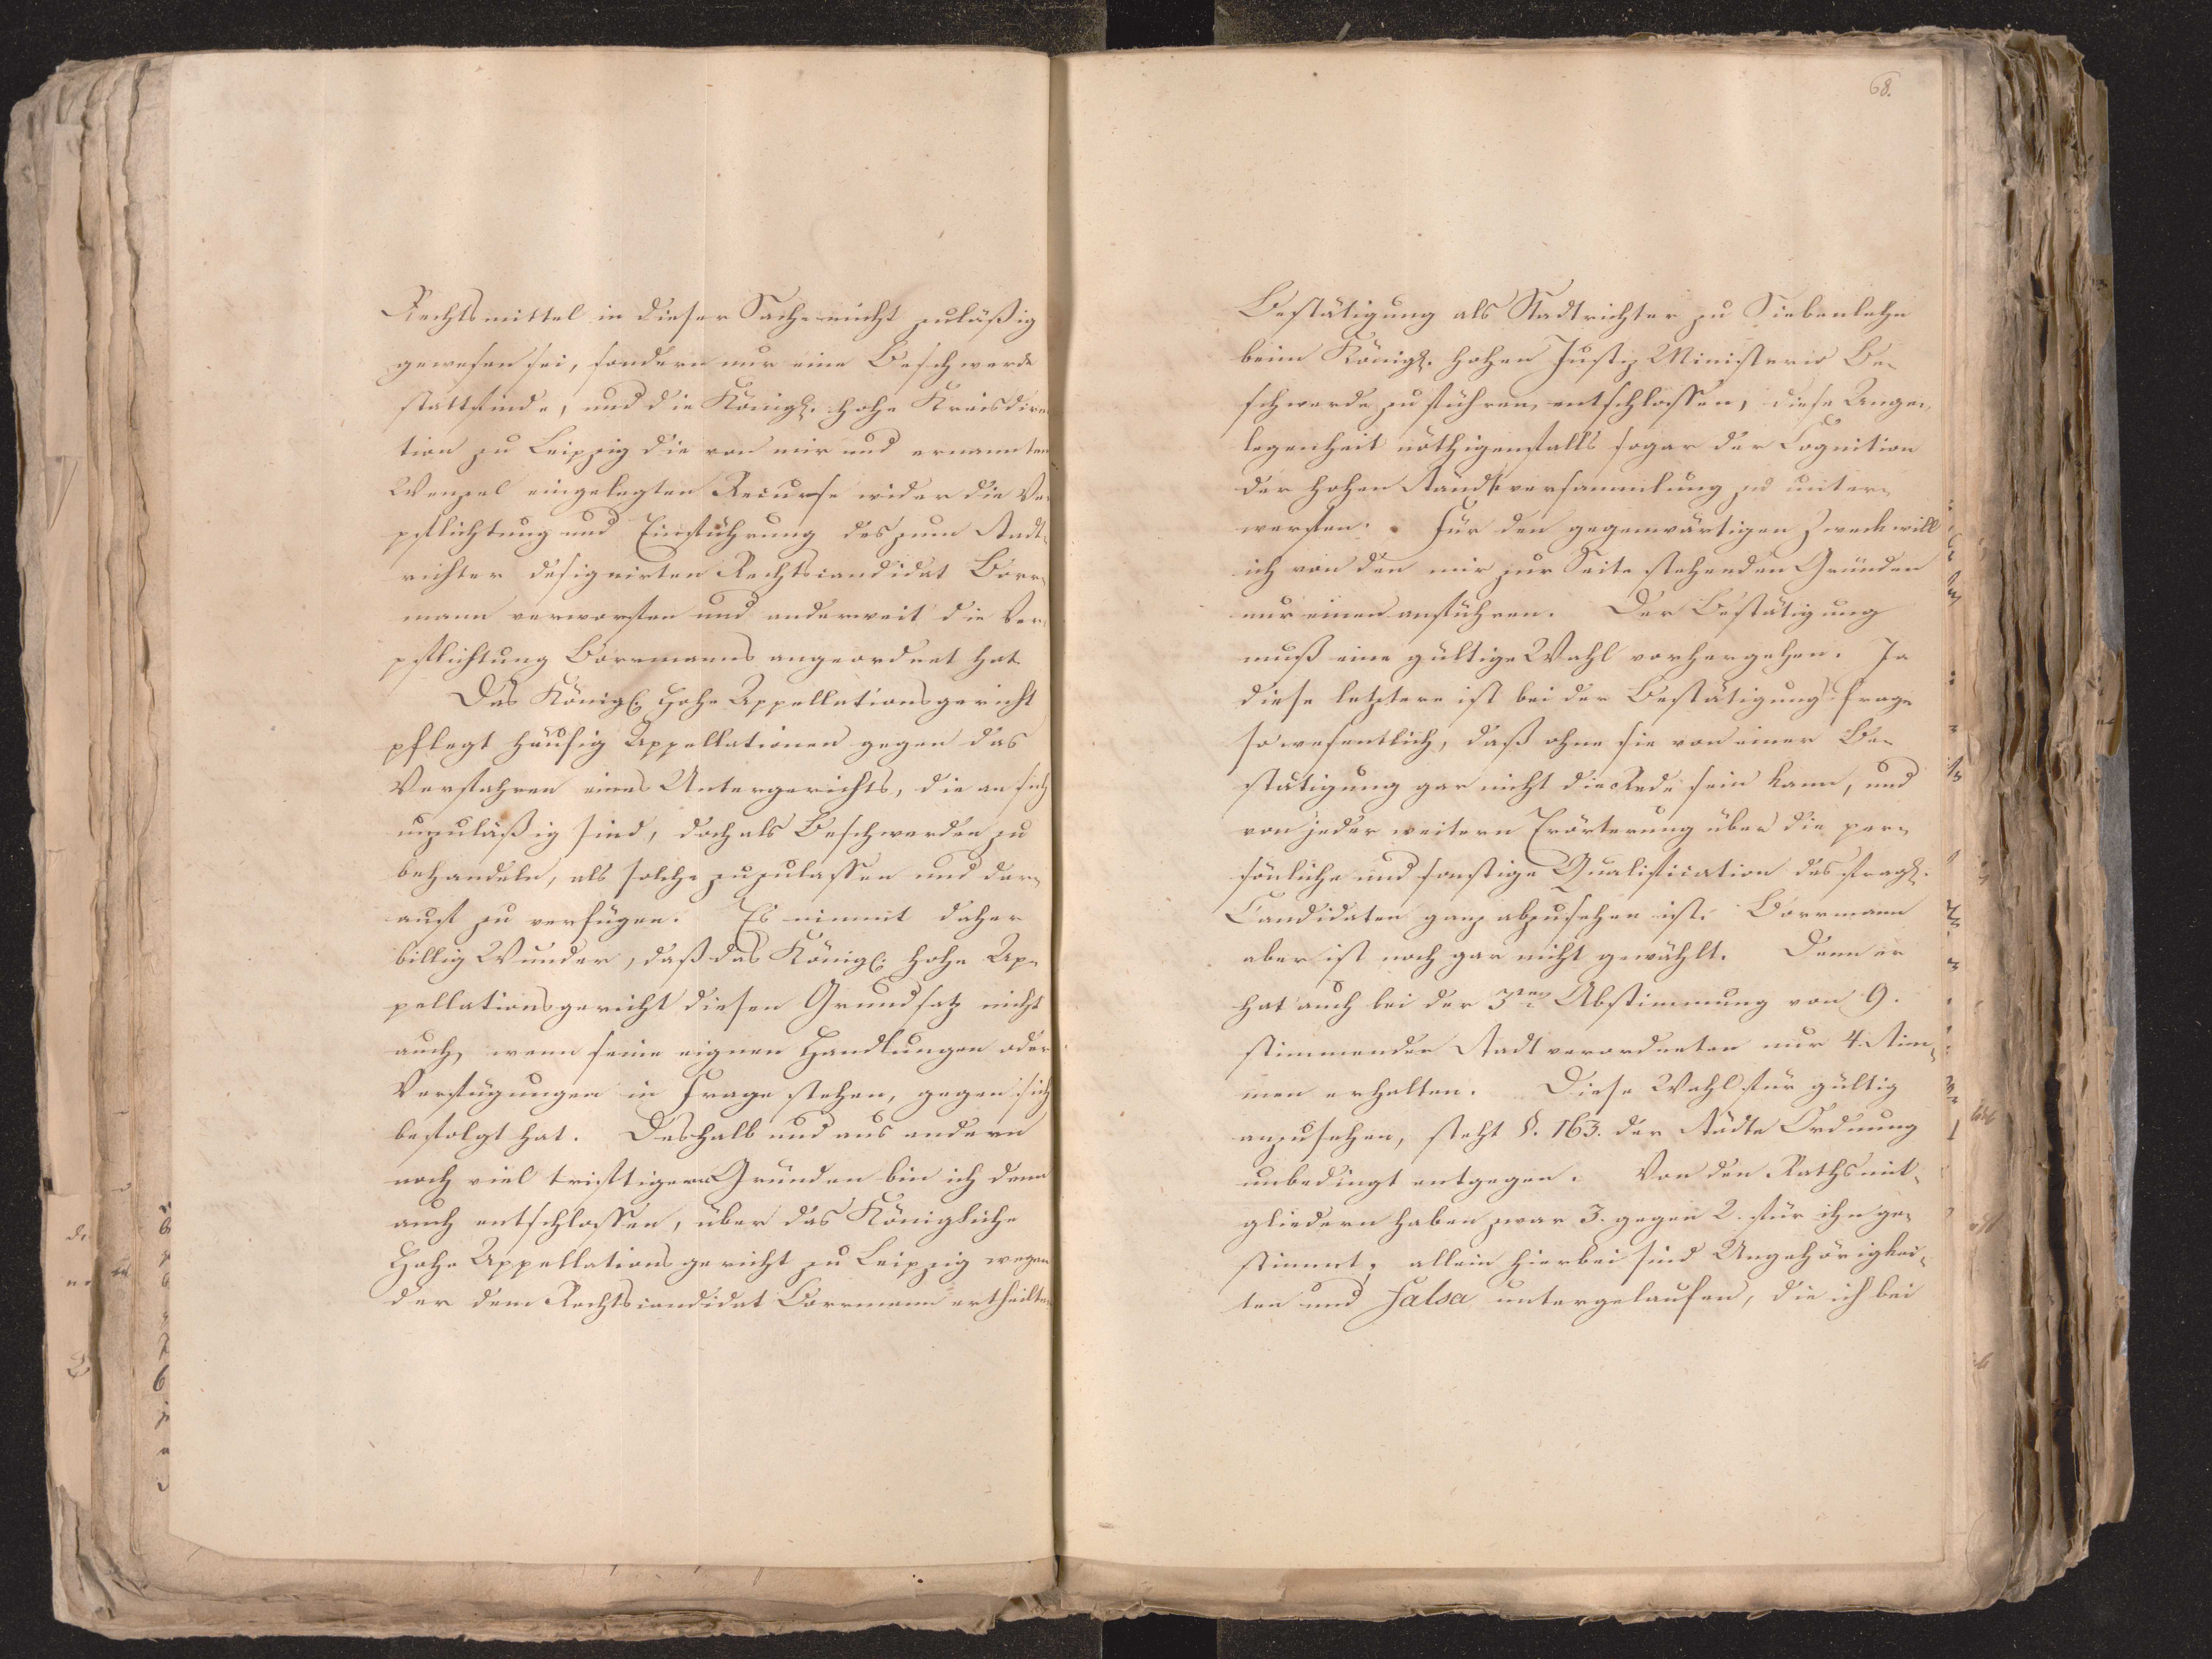 Rechtsmittel in dieser Sache nicht zuläßig
gewesen sei, sondern nur eine Beschwerde
stattfinde, und die Königl. hohe Kreisdirec
tion zu Leipzig die von mir und ernannten
Wenzel eingelegten Recurse wider die Ver
pflichtung und Einführung des zum Stadt-
richter designirten Rechtscandidat Borr-
mann verworfen und anderweit die Ver-
pflichtung Borrmanns angeordnet hat.
Das Königl. Hohe Appellationsgericht
pflegt häufig Appellationen gegen das
Verfahren eines Untergerichts, die an sich
unzuläßig sind, doch als Beschwerden zu
behandeln, als solche zuzulassen und dar-
auf zu verfügen. Es nimmt daher
billig Wunder, daß das Königl. hohe Ap-
pellationsgericht diesen Grundsatz nicht
auch, wenn seine eignen Handlungen oder
Verfügungen in Frage stehen, gegen sich
befolgt hat. Deshalb und aus andern
noch viel triftigern Gründen bin ich denn
auch entschlossen, über das Königliche
Hohe Appellationsgericht zu Leipzig wegen
der dem Rechtscandidat Borrmann ertheilten
68.
Bestätigung als Stadtrichter zu Siebenlehn
beim Königl. hohen Justiz Ministerio Be-
schwerde zu führen, entschlossen, diese Ange-
legenheit nöthigenfalls sogar der Cognition
der hohen Ständeversammlung zu unter-
werfen. Für den gegenwärtigen Zweck will
ich von den mir zur Seite stehenden Gründen
nur einen anführen. Der Bestätigung
muß eine gültige Wahl vorhergehen. Ja
diese letztere ist bei der Bestätigungsfrage
so wesentlich, daß ohne sie von einer Be-
stätigung gar nicht die Rede sein kann, und
von jeder weitern Erörterung über die per-
sönliche und sonstige Qualification des fragl.
Candidaten ganz abzusehen ist. Borrmann
aber ist noch gar nicht gewählt. Denn er
hat auch bei der 3ten Abstimmung von 9.
stimmenden Stadtverordneten nur 4. Stim-
men erhalten. Diese Wahl für gültig
anzusehen, steht §. 163. der Städte Ordnung
unbedingt entgegen. Von den Rathsmit-
gliedern haben zwar 3. gegen 2. für ihn ge-
stimmt, allein hierbei sind Ungehörigkei-
ten und Falsa untergelaufen, die ich bei